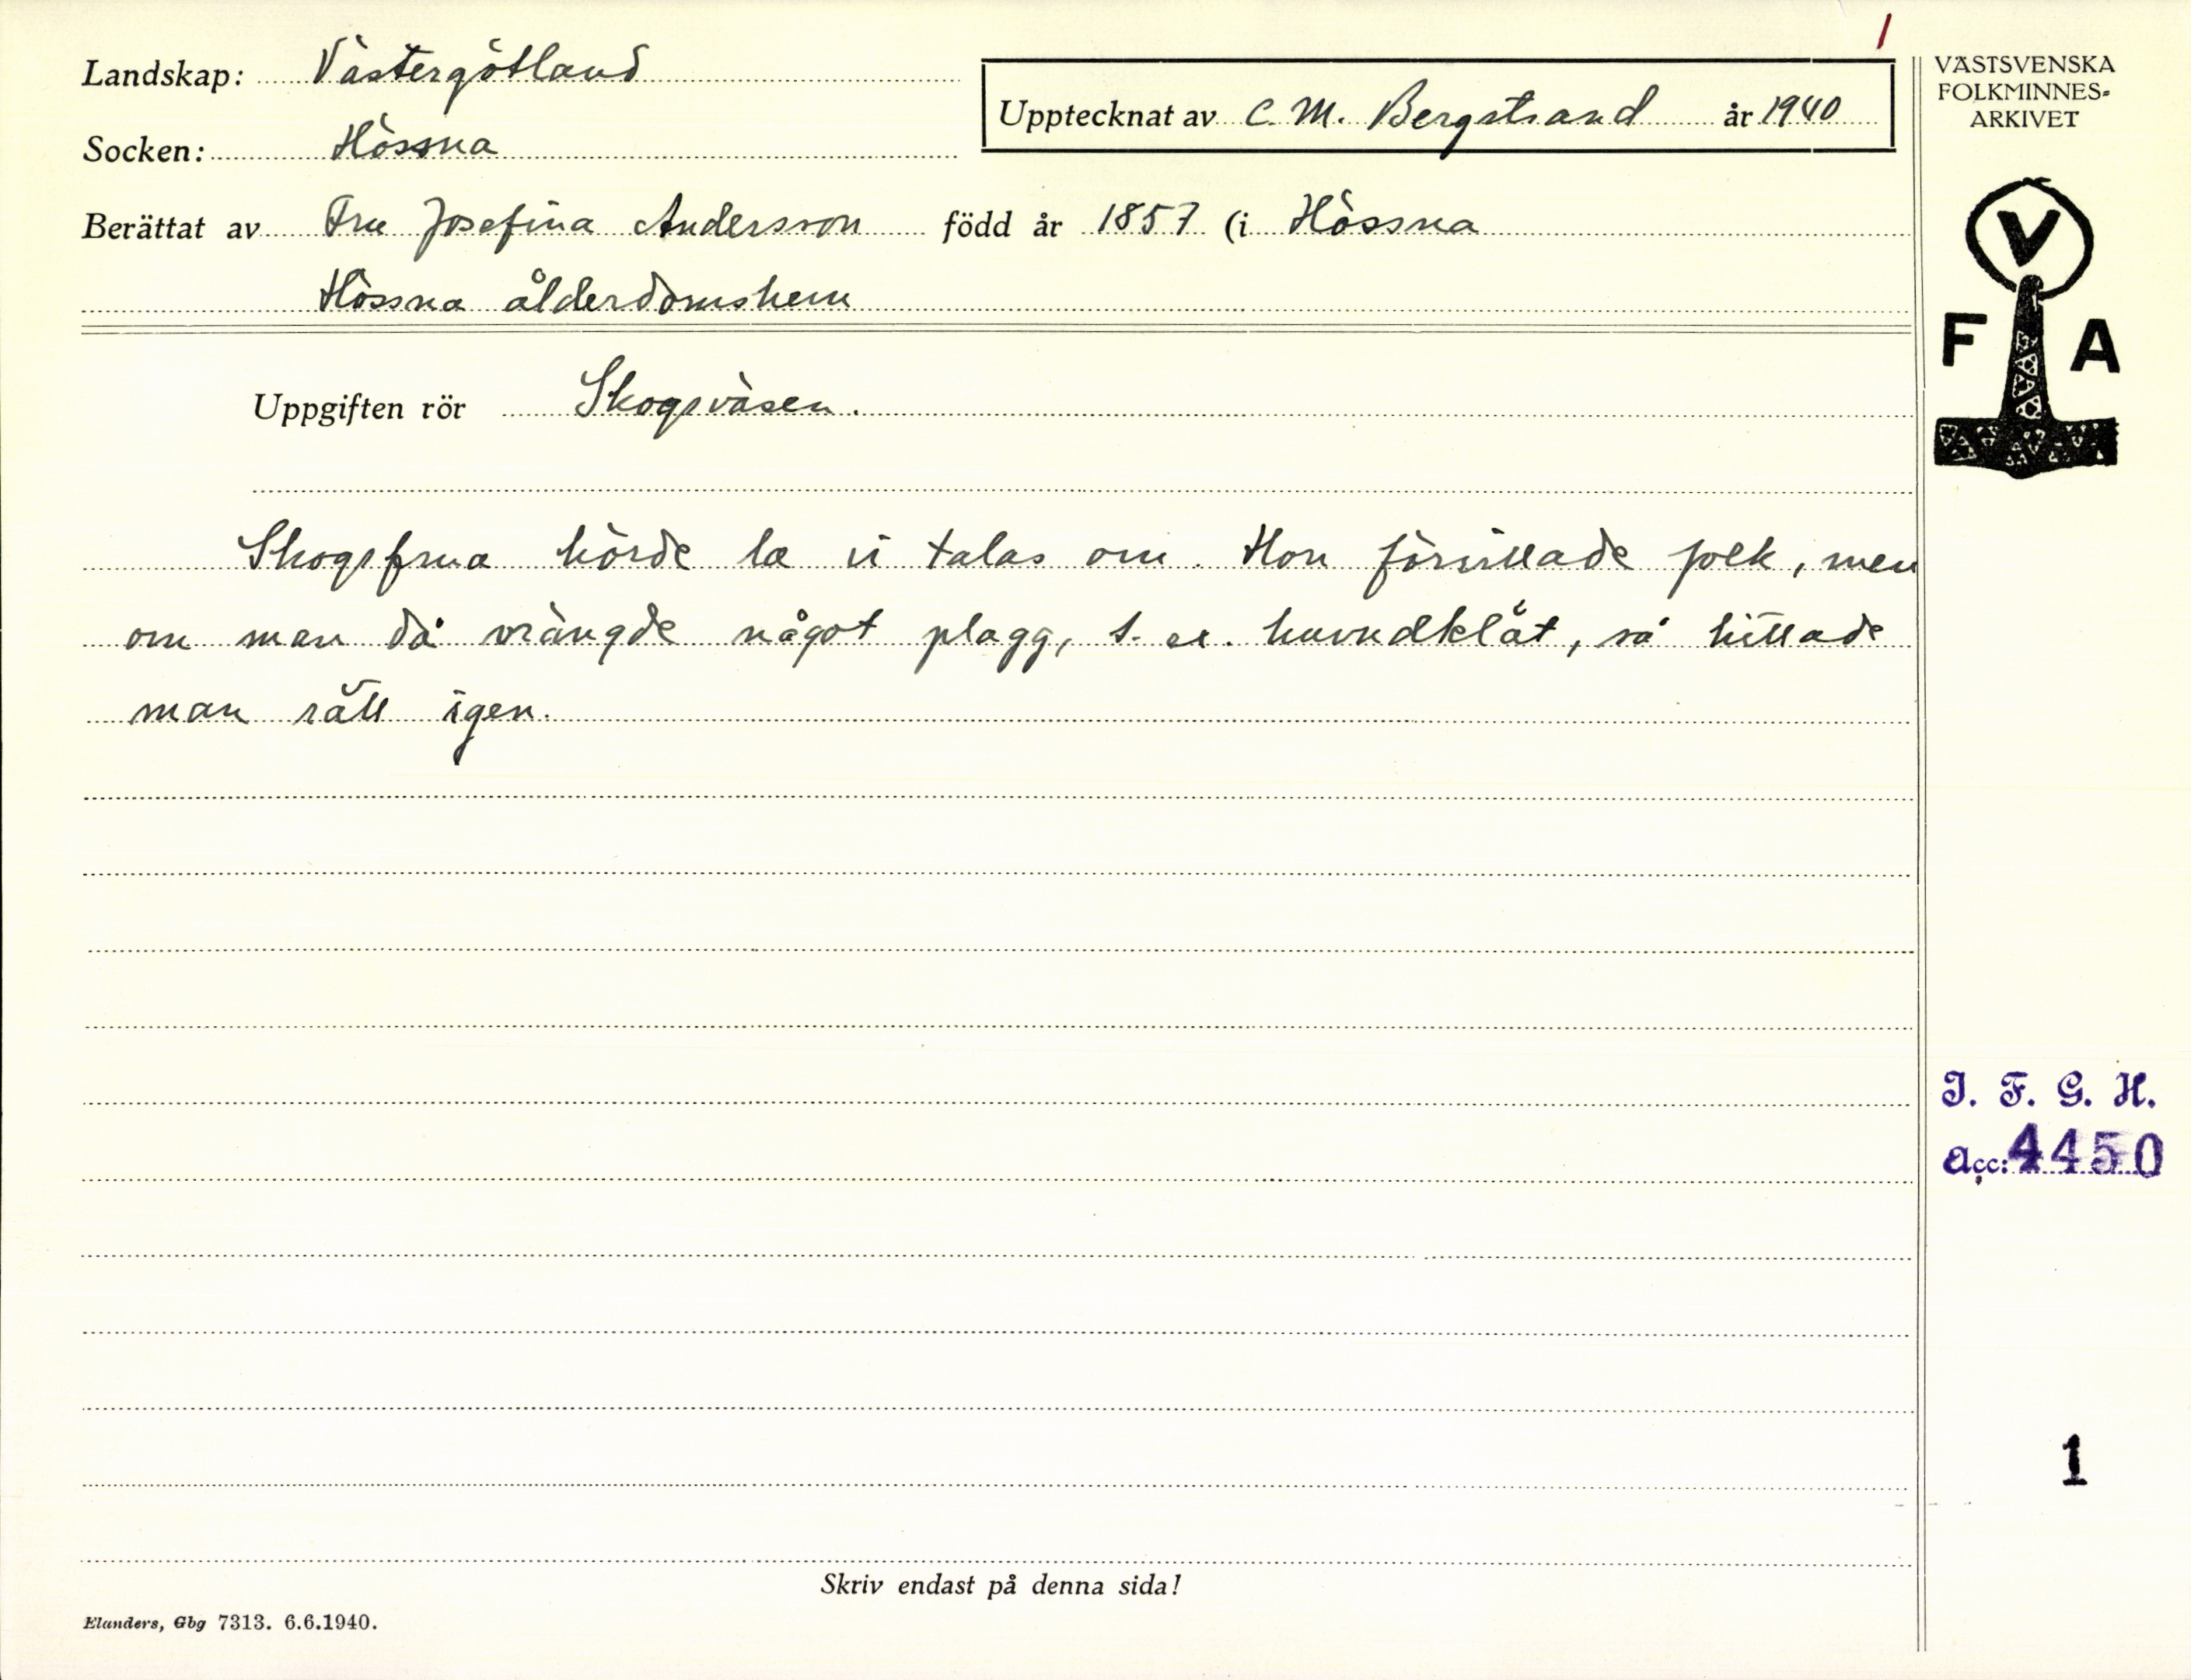 1
Landskap: Västergötland
Socken: Hössna
Upptecknat av C. M. Bergstrand år 1940
Berättat av Fru Josefina Andersson född år 1857 (i Hössna
Hössna ålderdomshem
Uppgiften rör Skogsväsen.
Skogsfrua hörde la vi talas om. Hon förvillade folk, men
om man då vrängde något plagg, t. ex. huvudklät, så hittade
man rätt igen.
Skriv endast på denna sida!
Elanders, Gbg 7313. 6.6.1940.
VÄSTSVENSKA
FOLKMINNES-
ARKIVET
V
F A
I. F. G. H.
Acc: 4450
1